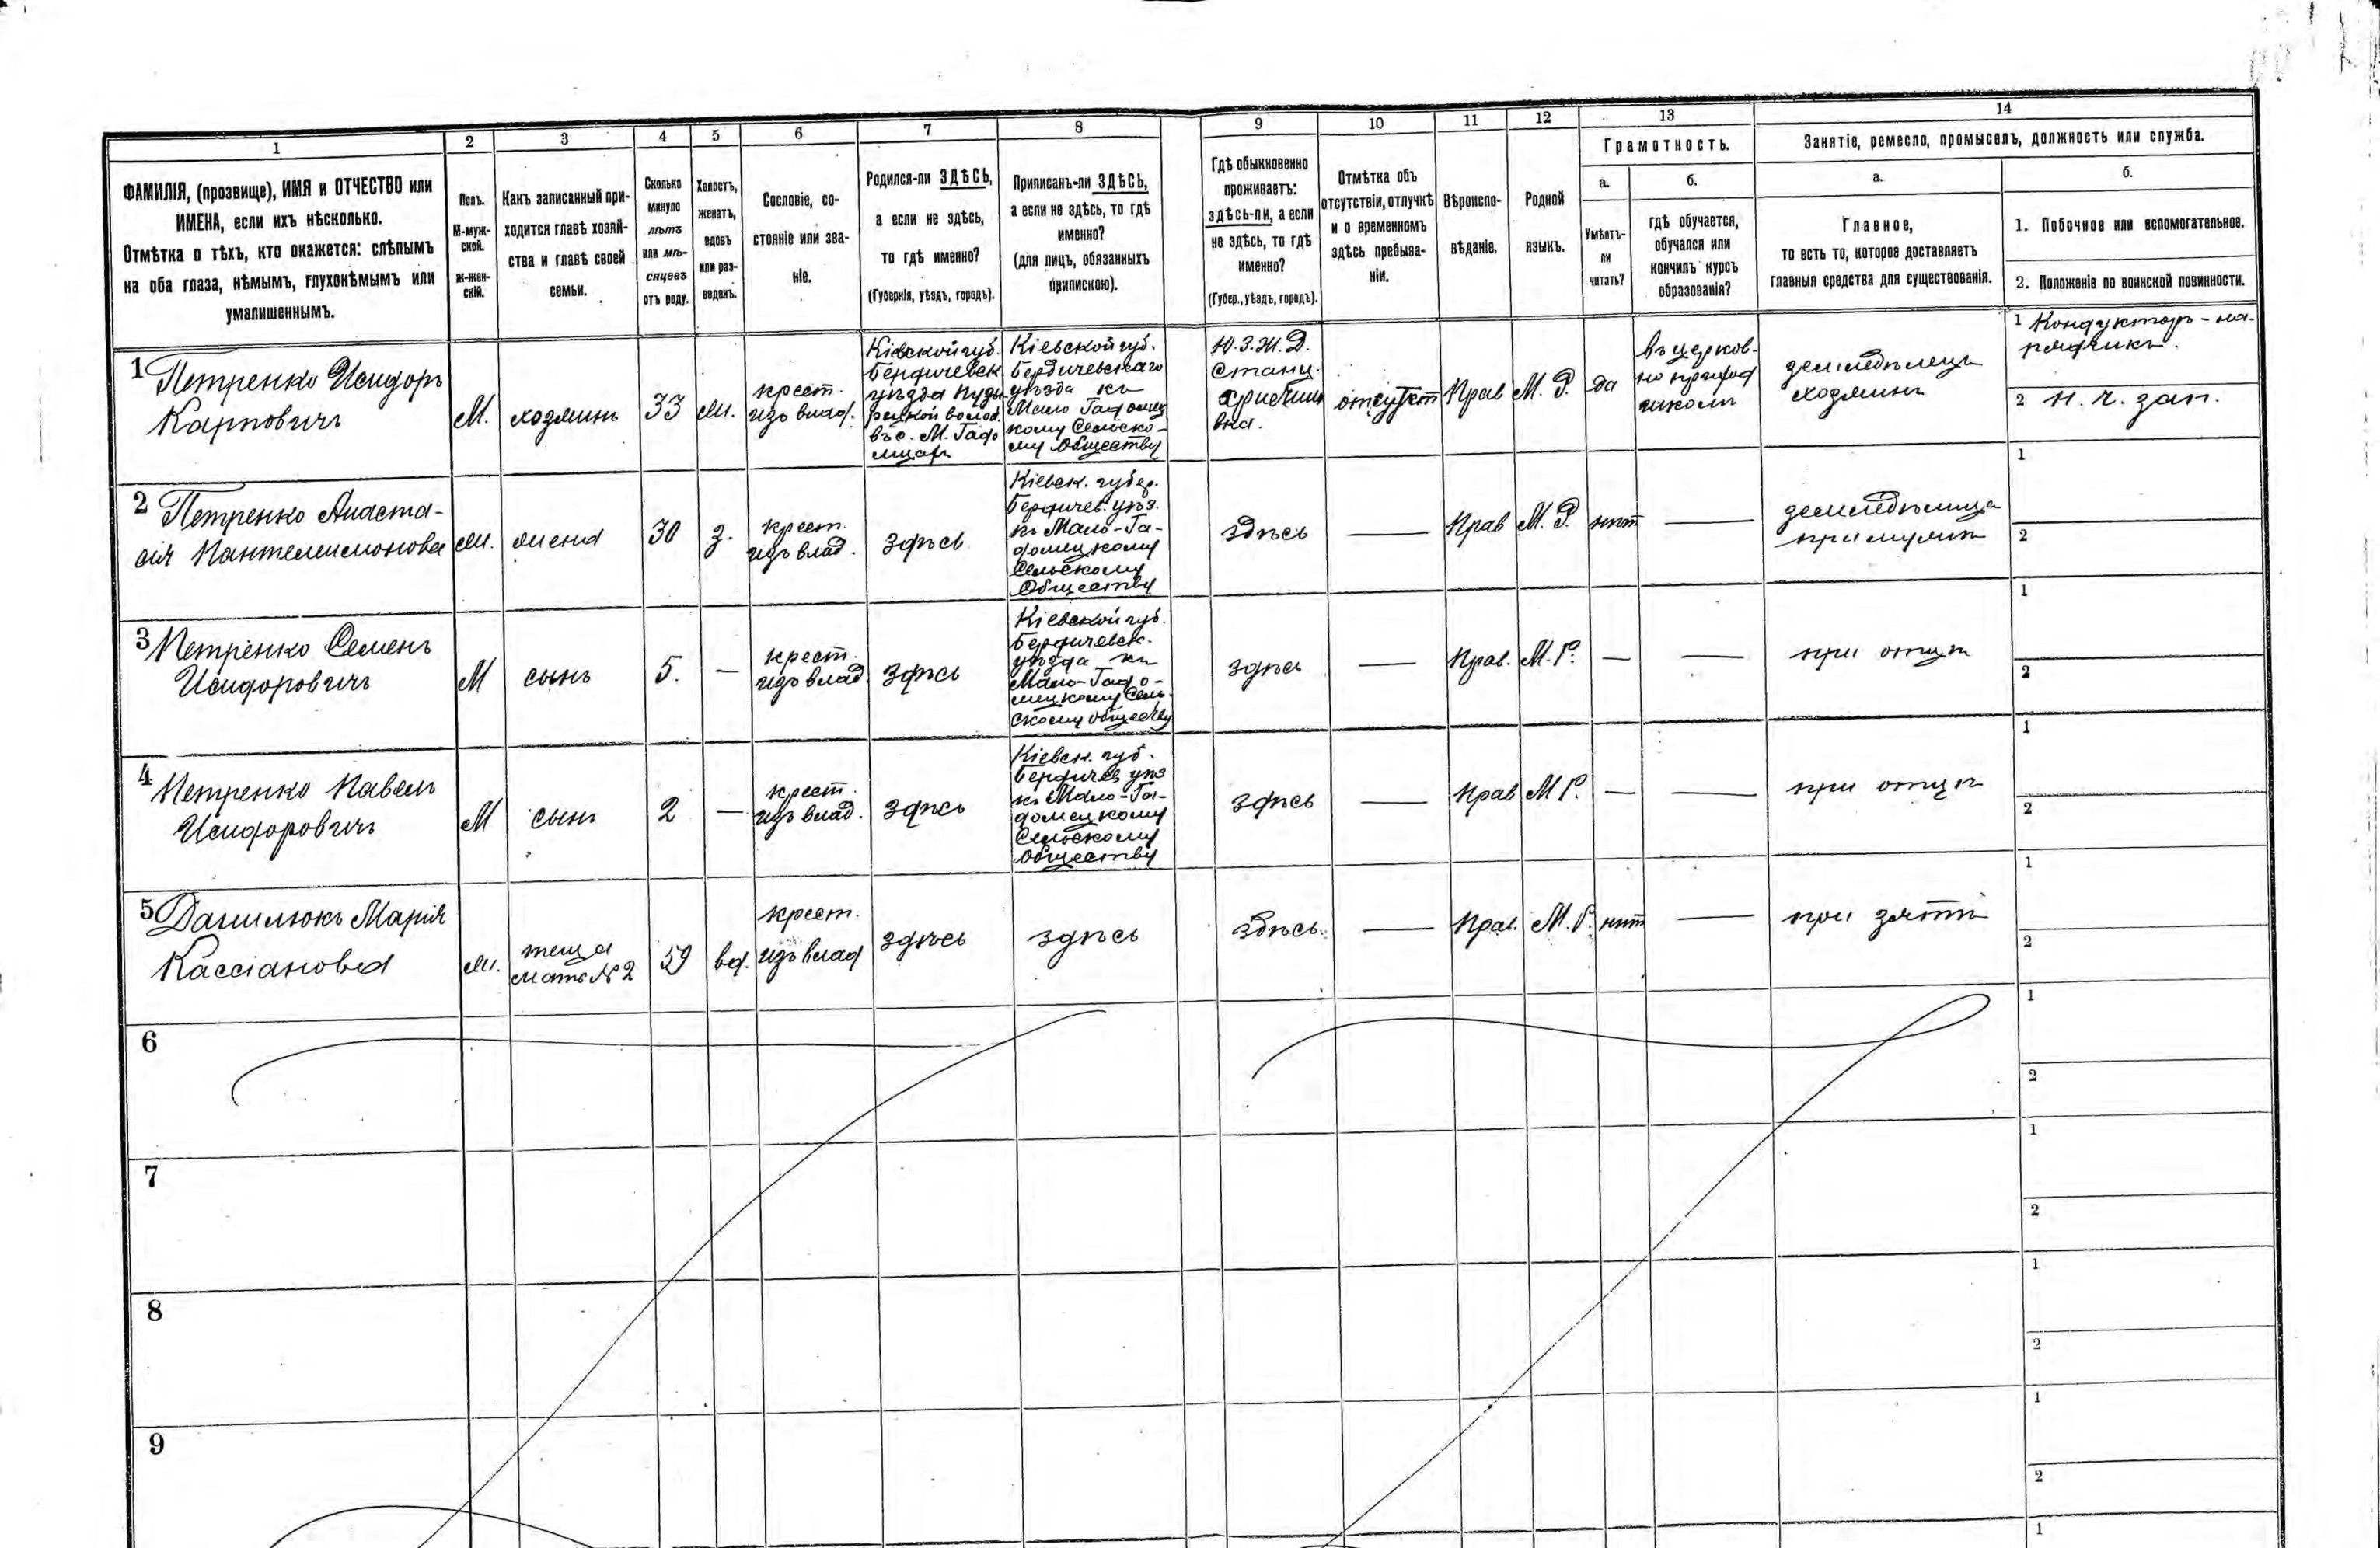 1
2
3
4
5
6
7
8
9
10
11
12
13
14
ФАМИЛІЯ, (прозвище), ИМЯ и ОТЧЕСТВО или
ИМЕНА, если ихъ нѣсколько.
Отмѣтка о тѣхъ, кто окажется: слѣпымъ
на оба глаза, нѣмымъ, глухонѣмымъ или
умалишеннымъ.
Полъ.
М-муж-
ской.
ж-жен-
скій.
Какъ записанный при-
ходится главѣ хозяй-
ства и главѣ своей
семьи.
Сколько
минуло
лѣтъ
или мѣ-
сяцевъ
отъ роду.
Холостъ,
женатъ,
вдовъ
или раз-
веденъ.
Сословіе, со-
стояніе или зва-
ніе.
Родился-ли ЗДѢСЬ,
а если не здѣсь,
то гдѣ именно?
(Губернія, уѣздъ, городъ).
Приписанъ-ли ЗДѢСЬ,
а если не здѣсь, то гдѣ
именно?
(для лицъ, обязанныхъ
припискою).
Гдѣ обыкновенно
проживаетъ:
здѣсь-ли, а если
не здѣсь, то гдѣ
именно?
(Губер., уѣздъ, городъ).
Отмѣтка объ
отсутствіи, отлучкѣ
и о временномъ
здѣсь пребыва-
ніи.
Вѣроиспо-
вѣданіе.
Родной
языкъ.
Грамотность.
а.
б.
Умѣетъ-
ли
читать?
гдѣ обучается,
обучался или
кончилъ курсъ
образованія?
Занятіе, ремесло, промыселъ, должность или служба.
а.
б.
Главное,
то есть то, которое доставляетъ
главныя средства для существованія.
1. Побочное или вспомогательное.
2. Положеніе по воинской повинности.
1 Петренко Исидоръ
Карповичъ
М.
хозяинъ
33
ж.
крест.
изъ влад.
Кіевской губ.
Бердичевск
уѣзда
въ с. М. Гадо
Кіевской губ.
Бердичевскаго
уѣзда къ
Мало Гадомец
кому Сельско-
му Обществу
Ю.З.Ж.Д.
Станц.
отсутст
Прав
М. Р.
да
въ церков-
но приход
школѣ
земледѣлецъ
хозяинъ
1 Кондукторъ - на-
рядчикъ.
2 Н. ч. зап.
2 Петренко Анаста-
сія Пантелеимонова
ж.
жена
30
з.
крест.
изъ влад.
здѣсь
Кіевск. губер.
Бердичев. уѣз.
къ Мало-Га-
домецкому
Сельскому
Обществу
здѣсь
—
Прав
М. Р.
нѣт
—
земледѣлица
при мужѣ
1
2
3 Петренко Семенъ
Исидоровичъ
М
сынъ
5.
—
крест.
изъ влад.
здѣсь
Кіевской губ.
Бердичевск.
уѣзда къ
Мало-Гадо-
мецкому Сель
скому обществу
здѣсь
—
Прав.
М. Р.
—
—
при отцѣ
1
2
4 Петренко Павелъ
Исидоровичъ
М
сынъ
2
—
крест.
изъ влад.
здѣсь
Кіевск. губ.
Бердичев уѣз
къ Мало-Га-
домецкому
Сельскому
Обществу
здѣсь
—
Прав
М Р.
—
—
при отцѣ
1
2
5 Данилюкъ Марія
Кассіановна
ж.
теща
мать № 2
59
вд.
крест.
изъ влад
здѣсь
здѣсь
здѣсь.
—
Прав.
М. Р.
нѣт
—
при зятѣ
1
2
6
1
2
7
1
2
8
1
2
9
1
2
1